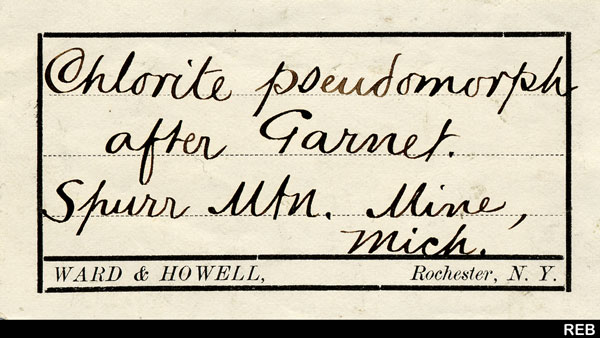 Chlorite pseudomorph
after Garnet.
Spurr Mtn. Mine,
Mich.
WARD & HOWELL, Rochester, N. Y.
REB